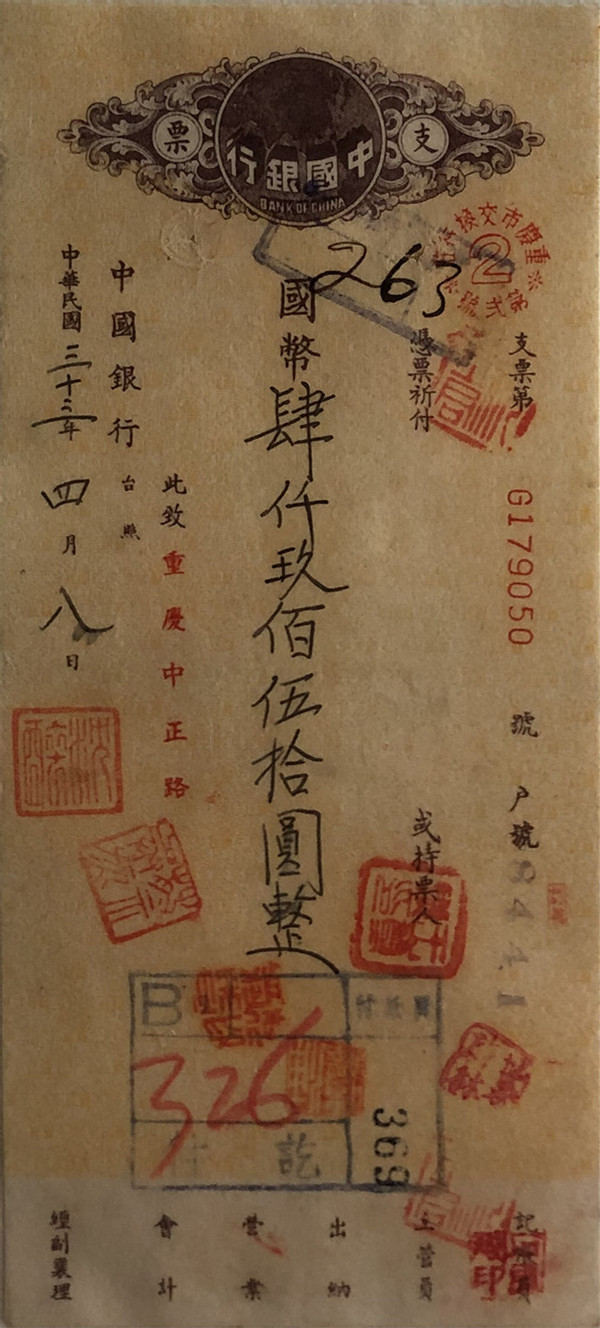 支票
中國銀行
BANK OF CHINA
重慶市交換
第弍號
2
263
支票第 G179050 號 戶號
憑票祈付 或持票人
國幣肆仟玖佰伍拾圓整
此致重慶中正路
中國銀行 台照
中華民國三十三年四月八日
B
326
付訖
369
記賬員
主管員
出納
營業
會計
經副襄理